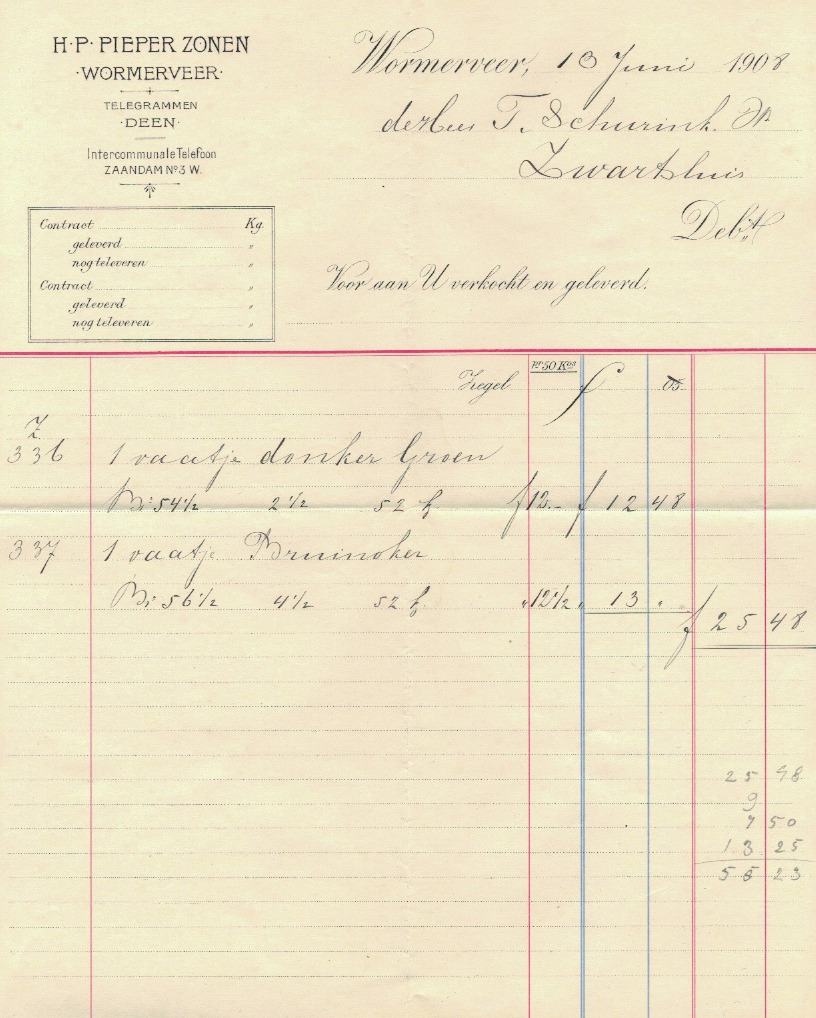 H·P· PIEPER ZONEN
·WORMERVEER·
TELEGRAMMEN
·DEEN·
Intercommunale Telefoon
ZAANDAM No 3 W.
Wormerveer, 13 Juni 1908
T. Schurink.
Zwartsluis
Debt
Contract Kg.
geleverd "
nog te leveren "
Contract "
geleverd "
nog te leveren "
Voor aan U verkocht en geleverd.
pr 50 Kos
Zegel f 05
Z
336 1 vaatje donker Groen
Br: 54½ 2½ 52 k f 12.- f 12 48
337 1 vaatje Bruinoker
Br: 56½ 4½ 52 k " 12½ " 13 "
f 25 48
25 48
9
7 50
13 25
55 23